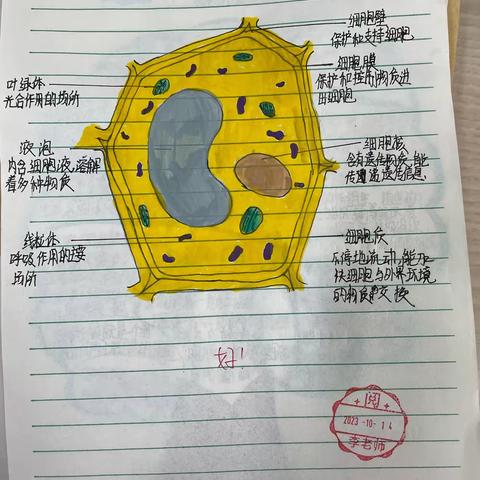 细胞壁
保护和支撑细胞
细胞膜
保护和控制物质进
出细胞
叶绿体
光合作用的场所
液泡
内含细胞液,溶解
着多种物质
细胞核
含有遗传物质,能
传递遗传信息
线粒体
呼吸作用的主要
场所
细胞质
不停地流动,能加
快细胞与外界环境
的物质交换
好!
阅
2023-10-14
李老师